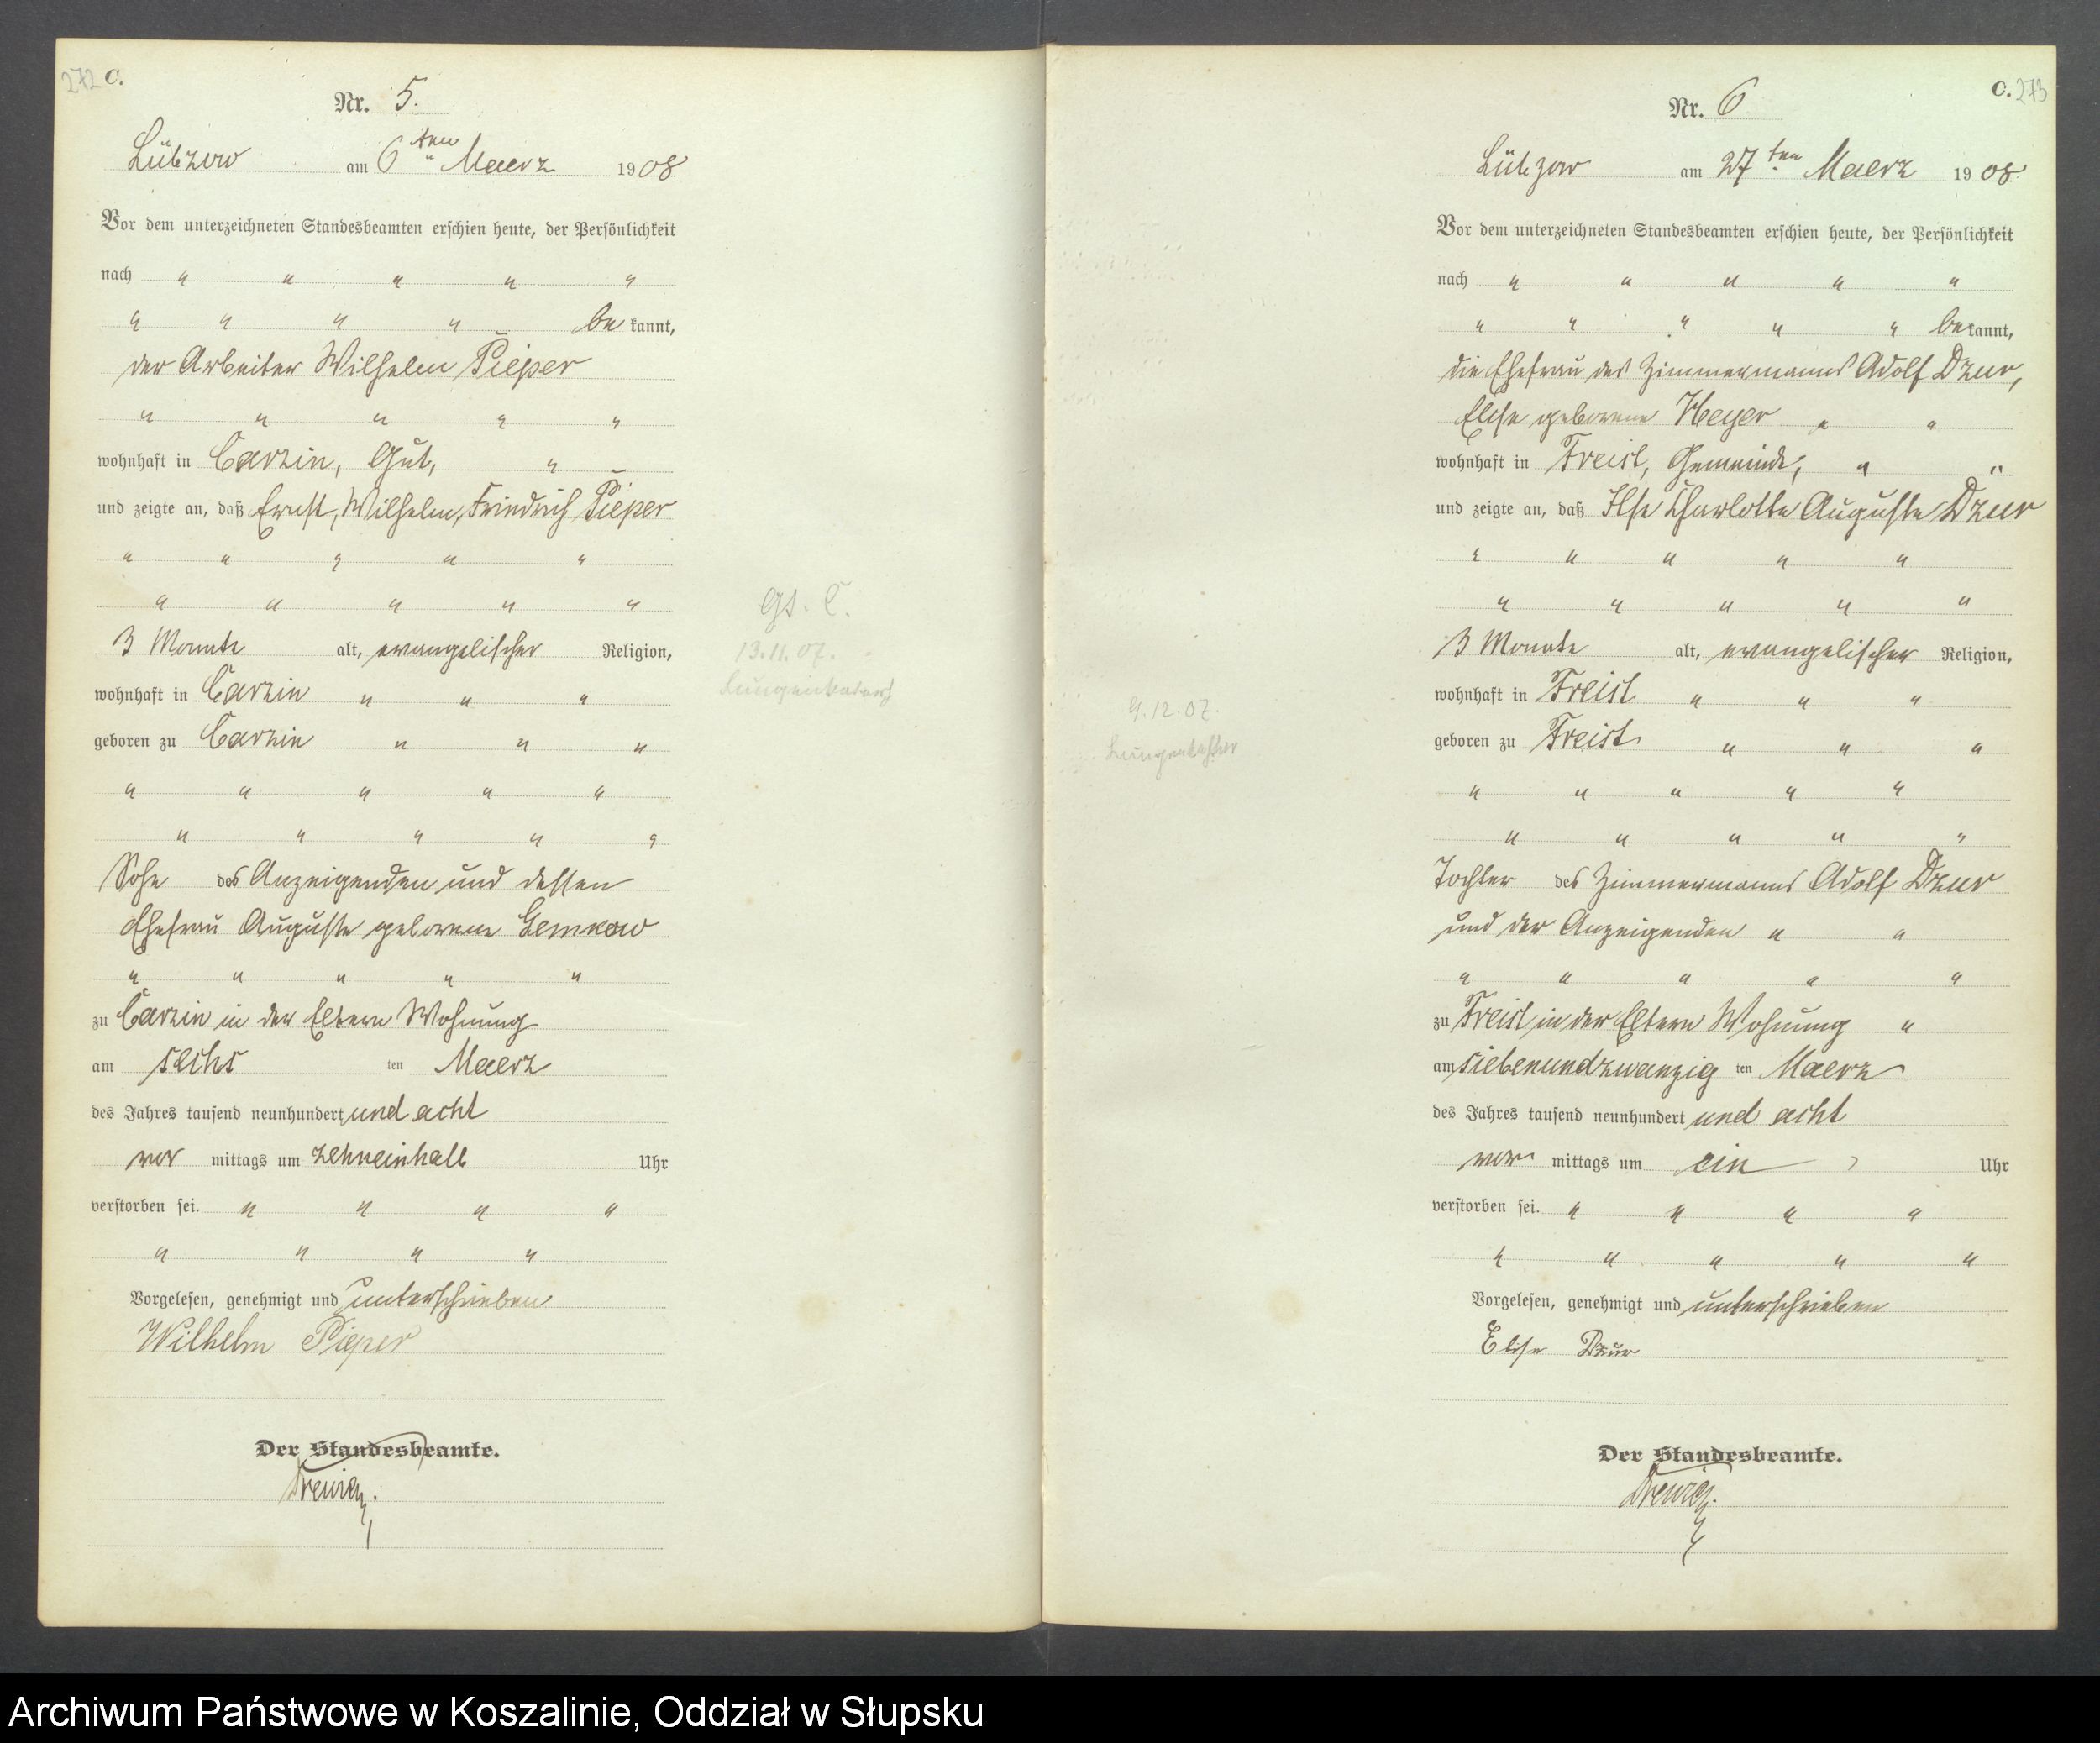 272 C.
Nr. 5.
Lübzow am 6ten Maerz 1908
Vor dem unterzeichneten Standesbeamten erschien heute, der Persönlichkeit
nach " " " " "
" " " " be kannt,
der Arbeiter Wilhelm Pieper
" " " " "
wohnhaft in Carzin, Gut, "
und zeigte an, daß Ernst, Wilhelm, Friedrich Pieper
" " " " "
" " " " "
3 Monate alt, evangelischer Religion,
wohnhaft in Carzin " " "
geboren zu Carzin " " "
" " " " "
" " " " "
Sohn des Anzeigenden und dessen
Ehefrau Auguste geborene Lemkow
" " " " "
zu Carzin in der Eltern Wohnung
am sechs ten Maerz
des Jahres tausend neunhundert und acht
vor mittags um zehneinhalb Uhr
verstorben sei. " " " "
" " " "
Vorgelesen, genehmigt und unterschrieben
Wilhelm Pieper
Der Standesbeamte.
Gs. C.
13.11.07.
C. 273
Nr. 6
Lübzow am 27ten Maerz 1908
Vor dem unterzeichneten Standesbeamten erschien heute, der Persönlichkeit
nach " " " " "
" " " " " bekannt,
die Ehefrau des Zimmermanns Adolf Dzur,
Elise geborene Heyer " "
wohnhaft in Freist, Gemeinde, " "
und zeigte an, daß Ilse Charlotte Auguste Dzur
" " " " "
" " " " "
3 Monate alt, evangelischer Religion,
wohnhaft in Freist " " "
geboren zu Freist " " "
" " " " "
" " " " "
Tochter des Zimmermanns Adolf Dzur
und der Anzeigenden " "
" " " " "
zu Freist in der Eltern Wohnung "
am siebenundzwanzig ten Maerz
des Jahres tausend neunhundert und acht
vor mittags um ein Uhr
verstorben sei. " " " "
" " " " "
Vorgelesen, genehmigt und unterschrieben
Elise Dzur
Der Standesbeamte.
9.12.07.
Archiwum Państwowe w Koszalinie, Oddział w Słupsku